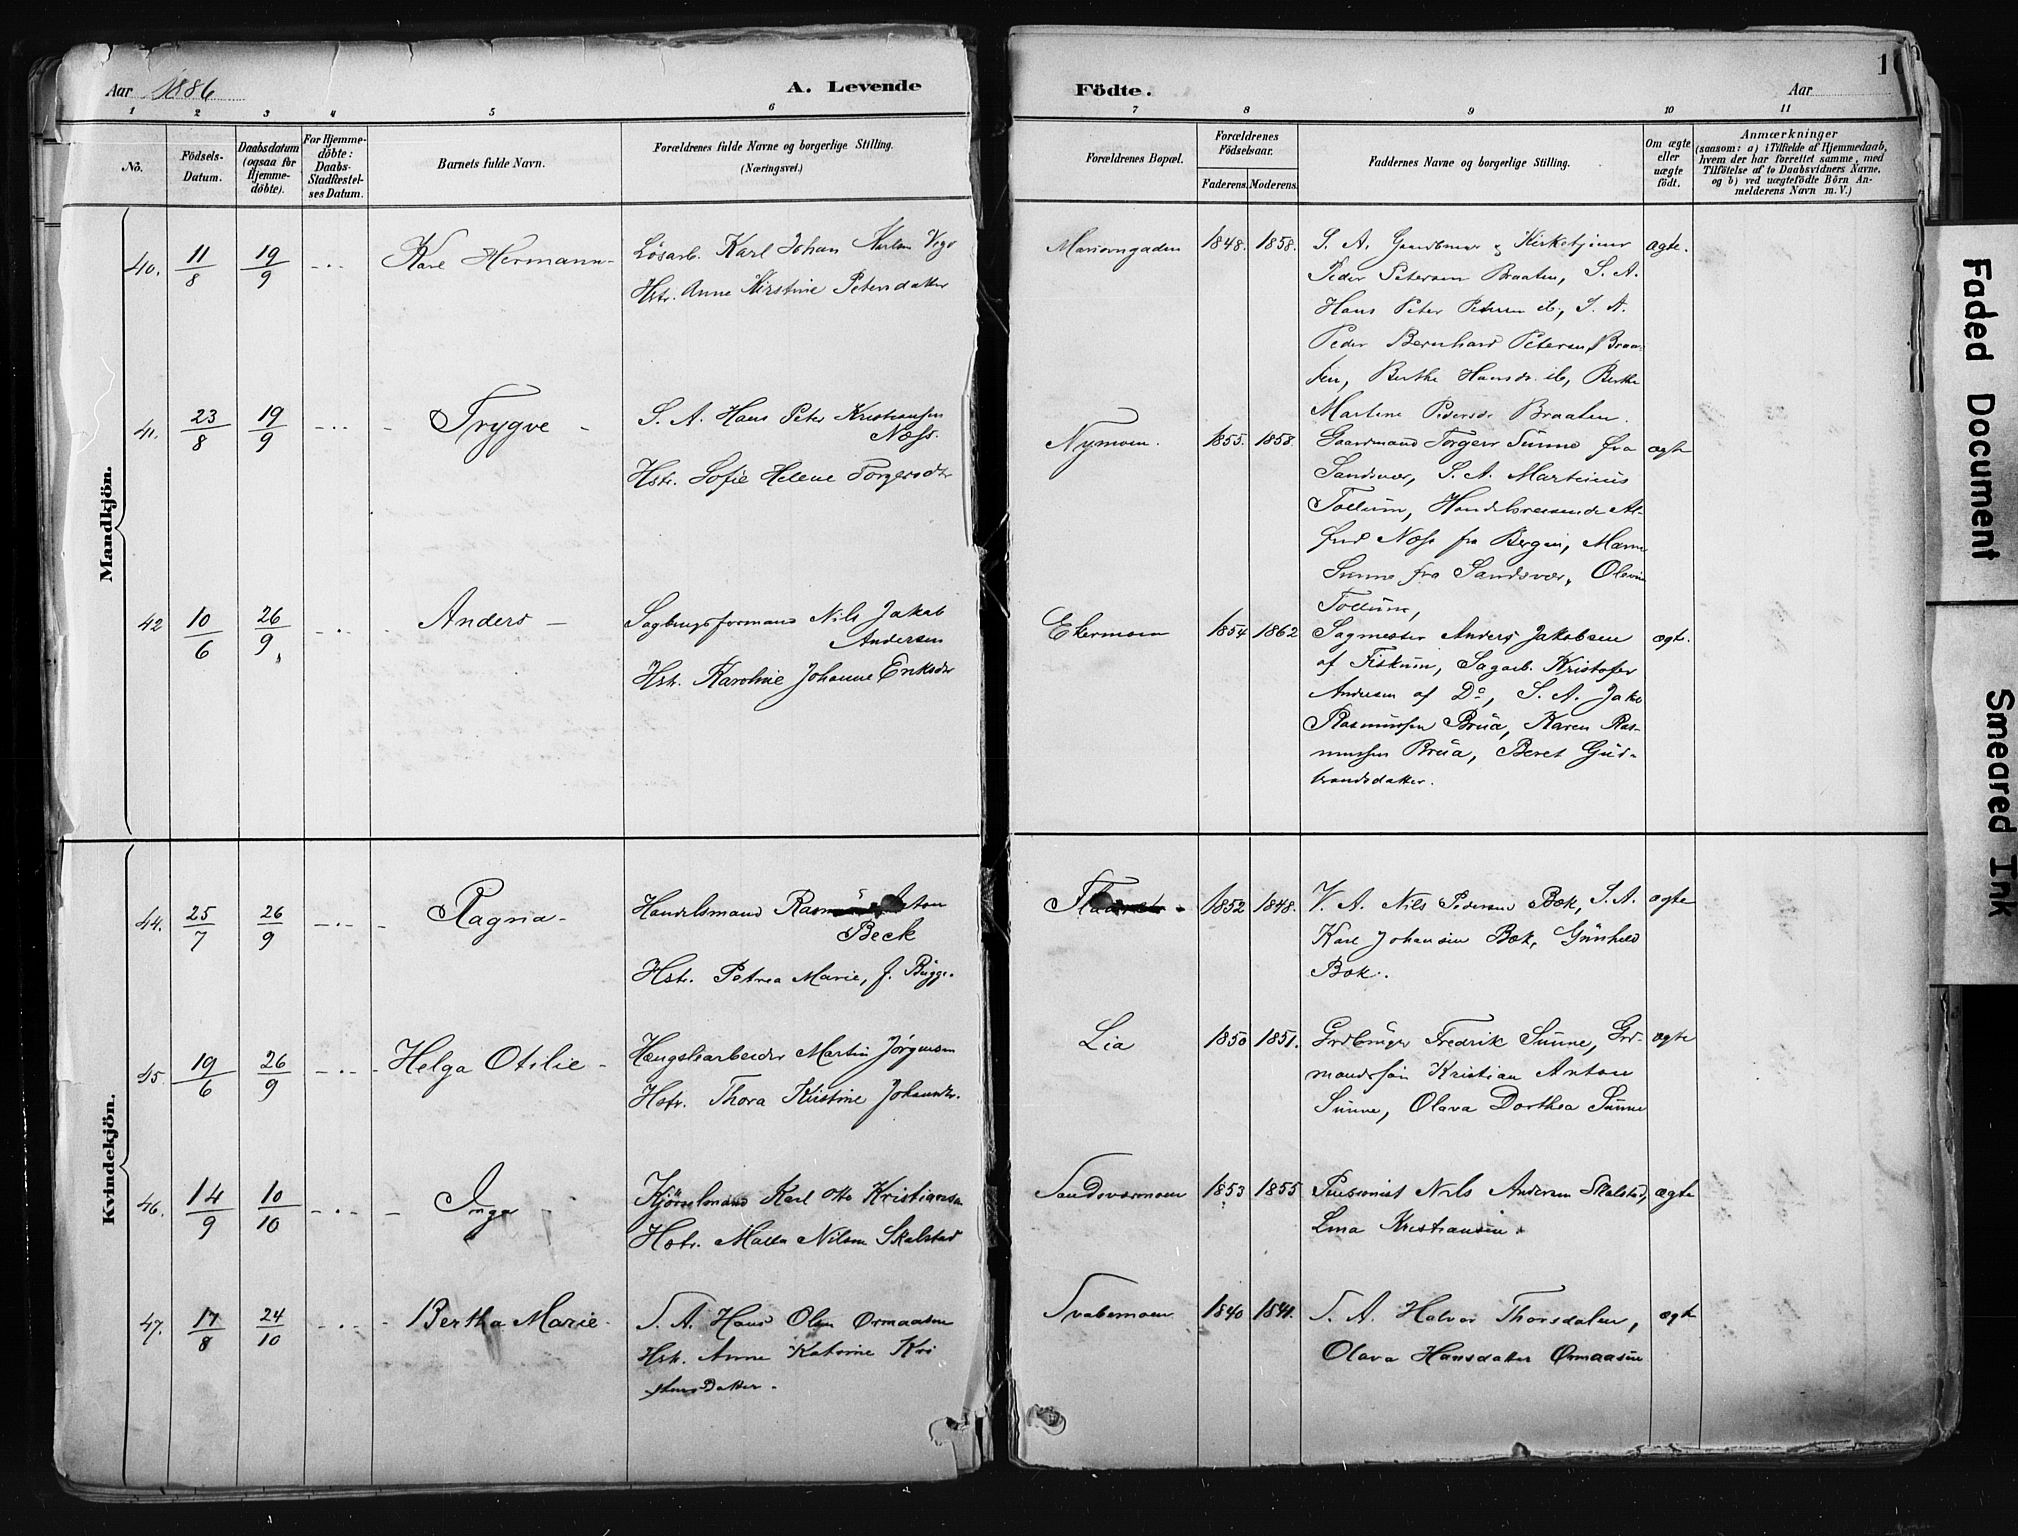 Aar 1886
A. Levende
Födte.
Aar
1
1 2 3 4 5 6 7 8 9 10 11
No.
Födsels-
Datum.
Daabsdatum
(ogsaa for
Hjemme-
döbte).
For Hjemme-
döbte:
Daabs-
Stadfæstel-
ses Datum.
Barnets fulde Navn.
Forældrenes fulde Navne og borgerlige Stilling.
(Næringsvei.)
Forældrenes Bopæl.
Forældrenes
Födselsaar.
Faderens. Moderens.
Faddernes Navne og borgerlige Stilling.
Om ægte
eller
uægte
født.
Anmærkninger
(saasom: a) i Tilfælde af Hjemmedaab,
hvem der har forrettet samme, med
Tilföielse af to Daabsvidners Navne,
og b) ved uægtefödte Börn An-
melderens Navn m. V.)
Mandkjön.
40. 11/8 19/9 Karl Hermann
Lösarb. Karl Johan
Hstr. Anne Kirstine Petersdatter
1848. 1858.
S. A. Gaardbruger & Kirketjener
Peder Petersen Braaten, S. A.
Hans Peter Petersen ib, S. A.
Peder Bernhard Petersen Braa-
ten, Berthe Hansdr. ib, Berthe
Martine Pedersdr Braaten.
ægte.
41. 23/8 19/9 Trygve
S. A. Hans Peter Kristiansen
Næss.
Hstr. Sofie Helene Torgersdtr
Nymoen. 1855. 1858.
Gaardmand Torger Sunne fra
Sandsvær, S. A. Martinius
Tollum, Handelsreisende Al-
fred Næss fra Bergen,
Sunne fra Sandsvær,
Tollum,
ægte
42 10/6 26/9 Anders
Sagbrugsformand Nils Jakob
Andersen
Hstr. Karoline Johanne Eriksdtr
Ekermoen 1854 1862
Sagmester Anders Jakobsen
af Fiskum, Sagarb. Kristofer
Andersen af Do, S. A. Jakob
Rasmussen Brua, Karen Ras-
mussen Brua, Beret Gud-
brandsdatter.
ægte.
Kvindekjön.
44. 25/7 26/9 Ragna
Handelsmand Anton
Beck
Hstr. Petrea Marie, f. Bugge.
1852 1848.
V. A. Nils Pedersen Bæk, S. A.
Karl Johansen Bæk, Gunhild
Bæk.
ægte
45. 19/6 26/9 Helga Otilie
Hængslearbeider Martin Jørgensen
Hstr. Thora Kristine Johannsdtr.
Lia 1850 1851.
Grdbruger Fredrik Sunne, Grd-
mandssøn Kristian Anton
Sunne, Olava Dorthea Sunne
ægte
46. 14/9 10/10 Inga
Kjörselsmand Karl Otto Kristiansen
Hstr. Malla Nilsen Skalstad
Sandsværmoen 1853 1855
Pensionist Nils Andersen Skalstad,
Lina Kristiansen.
ægte
47. 17/8 24/10 Bertha Marie
S. A. Hans Olsen Ormaasen
Hstr. Anne Katrine Kri
stensdatter.
Svabemoen 1840 1841.
S. A. Halvor Thorsdalen,
Olava Hansdatter Ormaasen
ægte
Faded Document
Smeared Ink